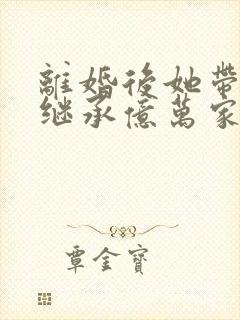 離婚後她帶
继承億萬家
覃金寶